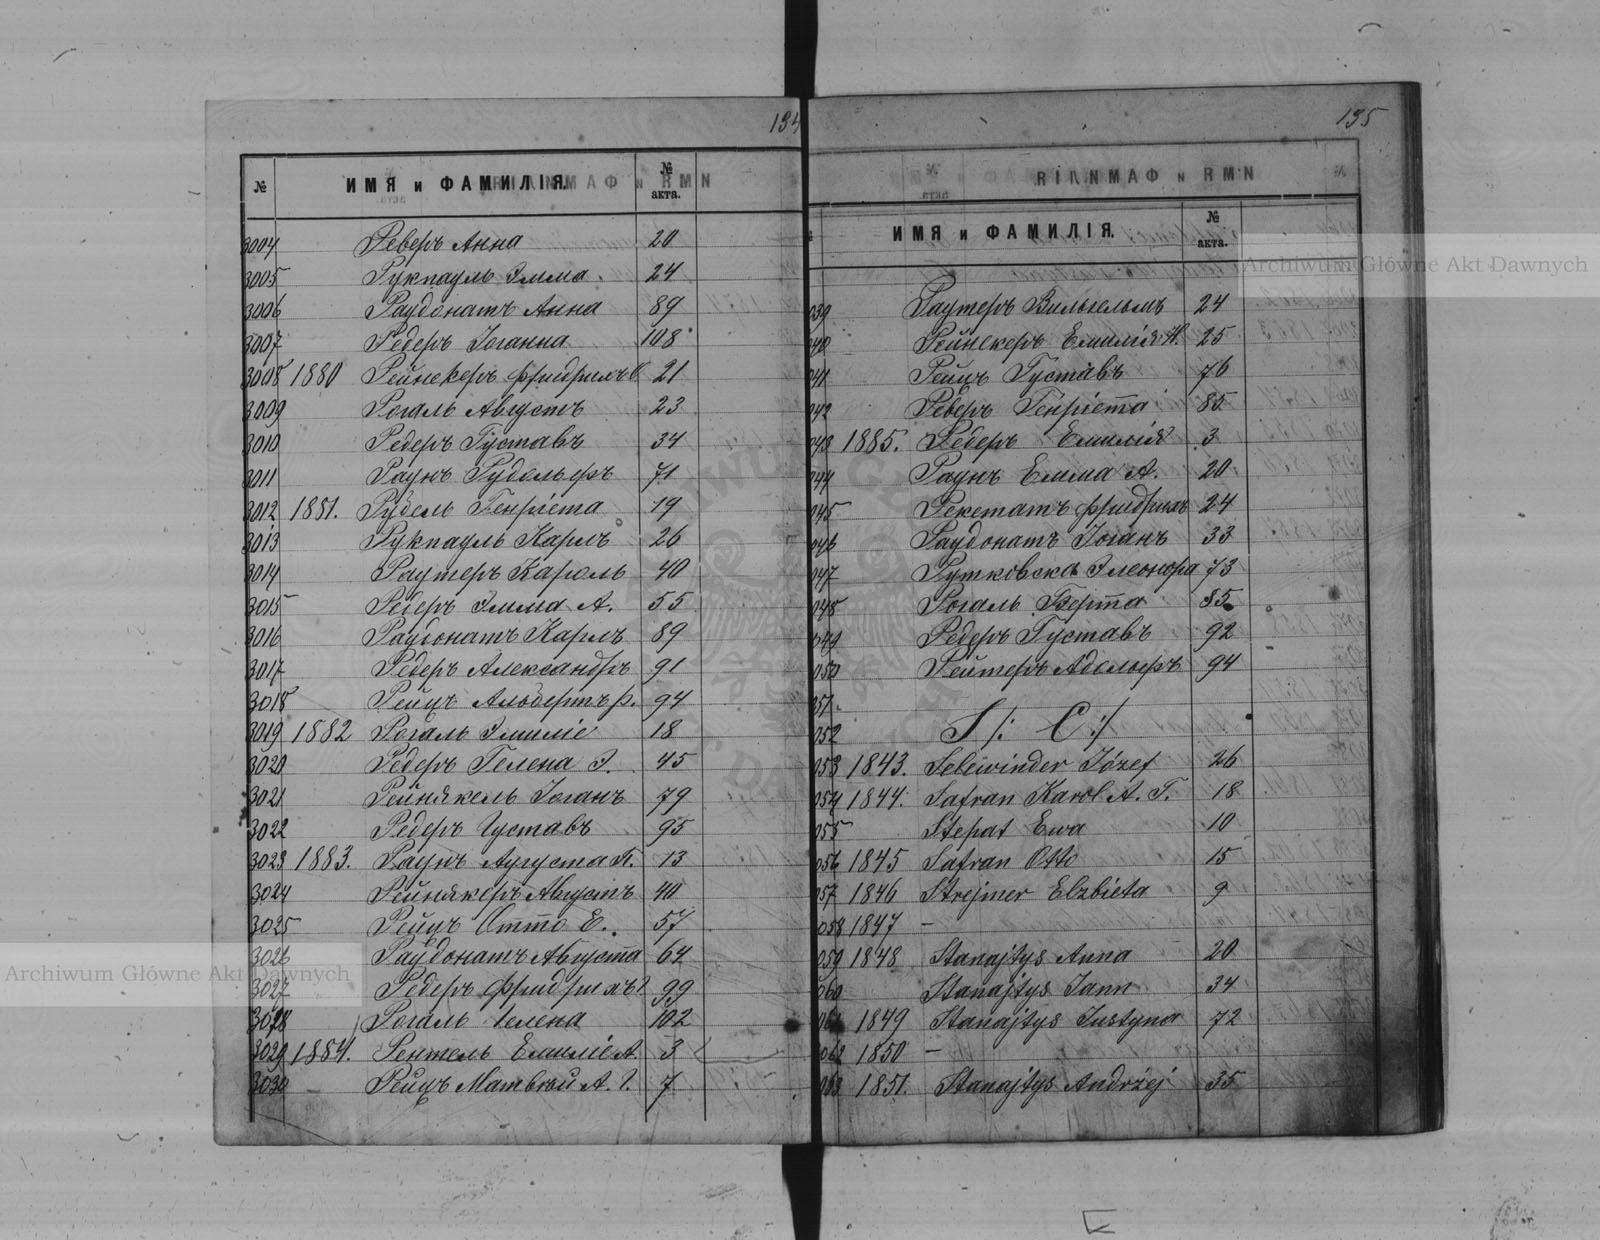 134
№ ИМЯ и ФАМИЛІЯ. № акта.
3004 Реверъ Анна 20
3005 Рукпауль Эмма 24
3006 Раудонатъ Анна 89
3007 Редеръ Іоганна 108
3008 1880 Рейнекеръ Фридрихъ 21
3009 Рогаль Августъ 23
3010 Редеръ Густавъ 34
3011 Раунъ Рудольфъ 71
3012 1881. Рудель Генріета 19
3013 Рукпауль Карлъ 26
3014 Раутеръ Кароль 40
3015 Реверъ Эмма А. 55
3016 Раудонатъ Карлъ 89
3017 Редеръ Александръ 91
3018 Рейцъ Альбертъ Р. 94
3019 1882 Рогаль Эмиліе 18
3020 Редеръ Гелена Э. 45
3021 Рейнякель Іоганъ 79
3022 Редеръ Густавъ 95
3023 1883. Раунъ Аугуста П. 13
3024 Рейнякеръ Августъ 40
3025 Рейцъ Отто Е. 57
3026 Раудонатъ Августа 64
3027 Редеръ Фридрихъ 99
3028 Рогаль Гелена 102
3029 1884. Рентель Емиліе А. 3
3030 Рейцъ Матвѣй А. Г. 7
135
ИМЯ и ФАМИЛІЯ. № акта.
039 Раутеръ Вильгельмъ 24
040 Рейнекеръ Емилія Н. 25
041 Рейцъ Густавъ 76
042 Реверъ Генріетта 85
043 1885. Редеръ Емилія 3
044 Раунъ Емма А. 20
045 Рекетатъ Фридрихъ 24
046 Раудонатъ Іоганъ 33
047 Рутковска Элеонора 73
048 Рогаль Берта 85
049 Редеръ Густавъ 92
050 Рейтеръ Адольфъ 94
051
052 S /: С :/
053 1843. Selewinder Józef 26
054 1844. Safran Karol A. T. 18
055 Stepat Ewa 10
056 1845 Safran Otto 15
057 1846 Strejmer Elzbieta 9
058 1847 –
059 1848 Stanajtys Anna 20
060 Stanajtys Jann 34
061 1849 Stanajtys Justyna 72
062 1850 –
063 1851. Stanajtys Andrzej 35
Archiwum Główne Akt Dawnych
Archiwum Główne Akt Dawnych